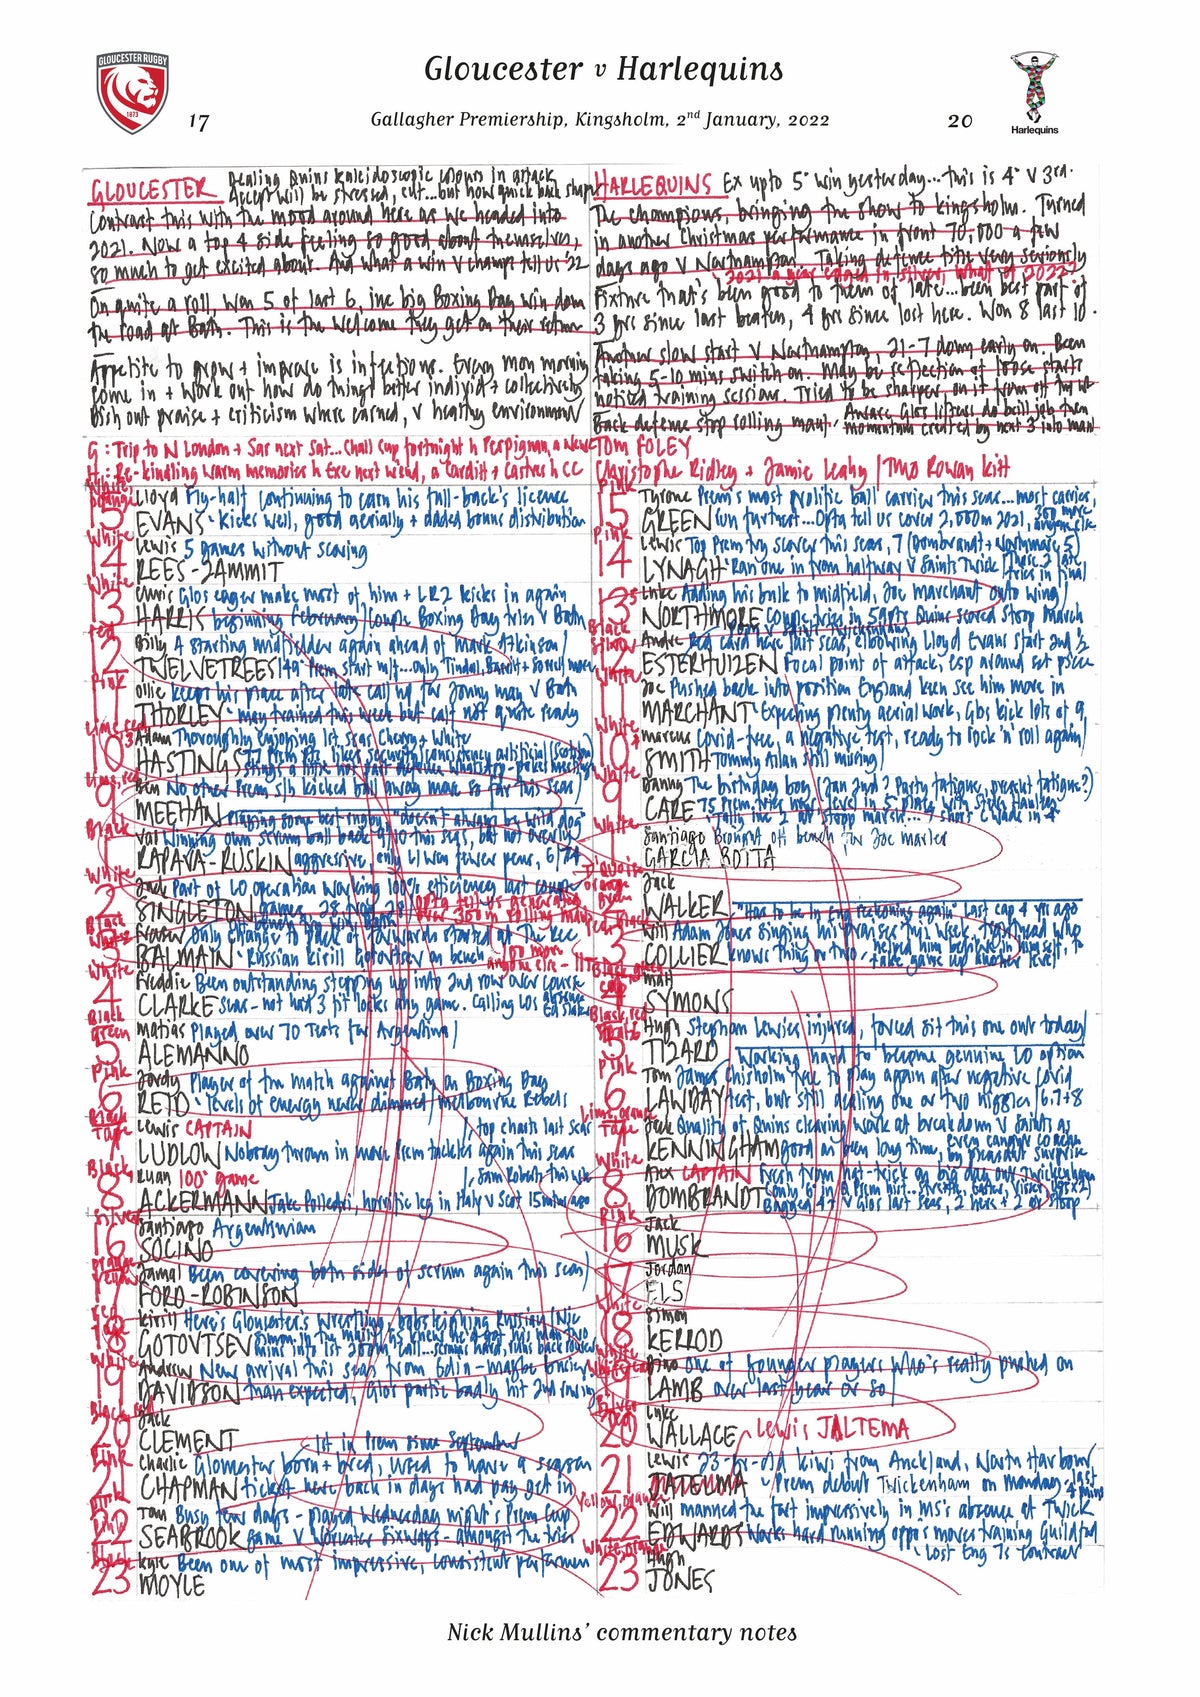 GLOUCESTER RUGBY
1873
Gloucester v Harlequins
17
Gallagher Premiership, Kingsholm, 2nd January, 2022
20
Harlequins
GLOUCESTER Dealing Quins kaleidoscopic colours in attack
Accept will be stressed, cut...but how quick back shape
Contrast this with the mood around here as we headed into
2021. Now a top 4 side feeling so good about themselves,
so much to get excited about. And what a win v champs tell us '22
On quite a roll, won 5 of last 6, inc big Boxing Day win down
the road at Bath. This is the welcome they get on their return
Appetite to grow + improve is infectious. Every mon morning
come in + work out how do things better individ + collectively
Dish out praise + criticism where earned, v healthy environment
HARLEQUINS Ex up to 5° win yesterday...this is 4° v 3rd.
The champions, bringing the show to Kingsholm. Turned
in another Christmas performance in front 70,000 a few
days ago v Northampton. Taking defence title very seriously
2021 a year edged in silver, what of 2022?
Fixture that's been good to them of late...been best part of
3 yrs since last beaten, 4 yrs since lost here. Won 8 last 10.
Another slow start v Northampton, 21-7 down early on. Been
taking 5-10 mins switch on. May be reflection of loose starts
noticed training sessions. Tried to be sharper on it from off
Back defence stop rolling maul. Aware Glos lifters do brill job then
momentum created by next 3 into maul
G: Trip to N London + Sar next Sat...Chall Cup fortnight h Perpignan, a Newc
H: Re-kindling warm memories h Exe next w'end, a Cardiff + Castres h CC
TOM FOLEY
Christophe Ridley + Jamie Leahy / TMO Rowan Kitt
15 Lloyd Fly-half continuing to earn his full-back's licence
EVANS Kicks well, good aerially + added bonus distribution
White
14 Lewis 5 games without scoring
REES-ZAMMIT
White
13 Chris Glos eager make most of him + LRZ kicks in again
HARRIS beginning February/Couple Boxing Day tries v Bath
Red
12 Billy A starting midfielder again ahead of Mark Atkinson
TWELVETREES
Pink
11 Ollie Keeps his place after late call up for Jonny May v Bath
THORLEY May trained this week but calf not quite ready
10 Adam Thoroughly enjoying 1st seas Cherry + White
HASTINGS
9 Ben No other Prem s/h kicked ball away more so far this seas
MEEHAN Playing some hot rugby, "doesn't always be wild dog"
Black
1 Val Winning own scrum ball back 9/10 this seas, but not overly
RAPAVA-RUSKIN aggressive, only L/ won fewer pens, 6/74
White
2 Jack Part of LO operation working 100% efficiency last couple
SINGLETON games, 28 from 28
3 Fraser Only change to pack of forwards started at The Rec
BALMAIN Russian Kirill Gotovtsev on bench
White
4 Freddie Been outstanding stepping up into 2nd row over course
CLARKE seas - not had 3 fit locks any game. Calling LOs absence Ed Slater
Black
Green
5 Matias Played over 70 Tests for Argentina
ALEMANNO
Pink
6 Jordy Player of the match against Bath on Boxing Day
REID levels of energy never dimmed/Melbourne Rebels
Black
Tape
7 Lewis CAPTAIN top charts last seas
LUDLOW Nobody thrown in more Prem tackles again this seas
Black
8 Ruan 100° game
ACKERMANN Jake Polledri, horrific leg in Italy v Scot 15 months ago
Silver
16 Santiago Argentinian
SOCINO
17 Jamal Been covering both sides of scrum again this seas
FORD-ROBINSON
18 Kirill Here's Gloucester's wrestling, bobsleighing Russian
GOTOVTSEV
White
19 Andrew New arrival this seas from Edin - maybe busier
DAVIDSON than expected, Glos partic badly hit 2nd row inj
20 Jack
CLEMENT
1st in Prem since September
Pink
21 Charlie Gloucester born + bred, used to have a season
CHAPMAN ticket here back in days had pay get in
Pink
22 Tom Busy few days - played Wednesday night's Prem Cup
SEABROOK game v Worcester Sixways - amongst the tries
23 Kyle Been one of most impressive, consistent performers
MOYLE
Pink
15 Tyrone Prem's most prolific ball carrier this seas...most carries,
GREEN run furthest...Opta tell us cover 2,000m 2021, 300 more anyone else
Pink
14 Lewis Top Prem try scorer this seas, 7 (Dombrandt + Northmore 5)
LYNAGH Ran one in from halfway v Saints Twick
13 Luke Adding his bulk to midfield, Joe Marchant onto wing
NORTHMORE
Black
12 Andre Red card here last seas, elbowing Lloyd Evans start 2nd ½
ESTERHUIZEN Focal point of attack, esp around set piece
White
11 Joe Pushed back into position England keen see him more in
MARCHANT Expecting plenty aerial work, Glos kick lots of 9
White
10 Marcus Covid-free, a negative test, ready to rock 'n' roll again
SMITH Tommy Allan still missing
White
9 Danny The birthday boy (Jan 2nd? Party fatigue, present fatigue?)
CARE
White
1 Santiago Brought off bench for Joe Marler
GARCIA BOTTA
2 Jack
WALKER "Has to be in Eng reckoning again" Last cap 4 yrs ago
3 Will Adam Jones singing his praises this week. Tighthead who
COLLIER knows thing or two, helped him believe in himself, to
take game up another level
4 Matt
SYMONS
5 Hugh Stephan Lewies injured, forced sit this one out today
TIZARD Working hard to become genuine LO option
Pink
6 Tom James Chisholm free to play again after negative covid
LAWDAY test, but still dealing one or two niggles / 6, 7 + 8
Tape
7 Jack Quality of Quins clearing work at breakdown v Saints as
KENNINGHAM good as been long time, even caught coach
by pleasant surprise
White
8 Alex CAPTAIN Fresh from hat-trick on big day out Twickenham
DOMBRANDT
Bagged 4 t v Glos last seas, 2 here + 2 at Stoop
Pink
16 Jack
MUSK
17 Jordan
ELS
White
18 Simon
KERROD
19 Dino One of younger players who's really pushed on
LAMB over last year or so
20 Luke
WALLACE Lewis JALTEMA
21 Lewis 23-yr-old kiwi from Auckland, North Harbour
Prem debut Twickenham on Monday, last 4 mins
22 Will Manned the fort impressively in MS's absence at Twick
EDWARDS Works hard running oppo moves training Guildford
Lost Eng 7s contract
23 Hugh
JONES
Nick Mullins' commentary notes